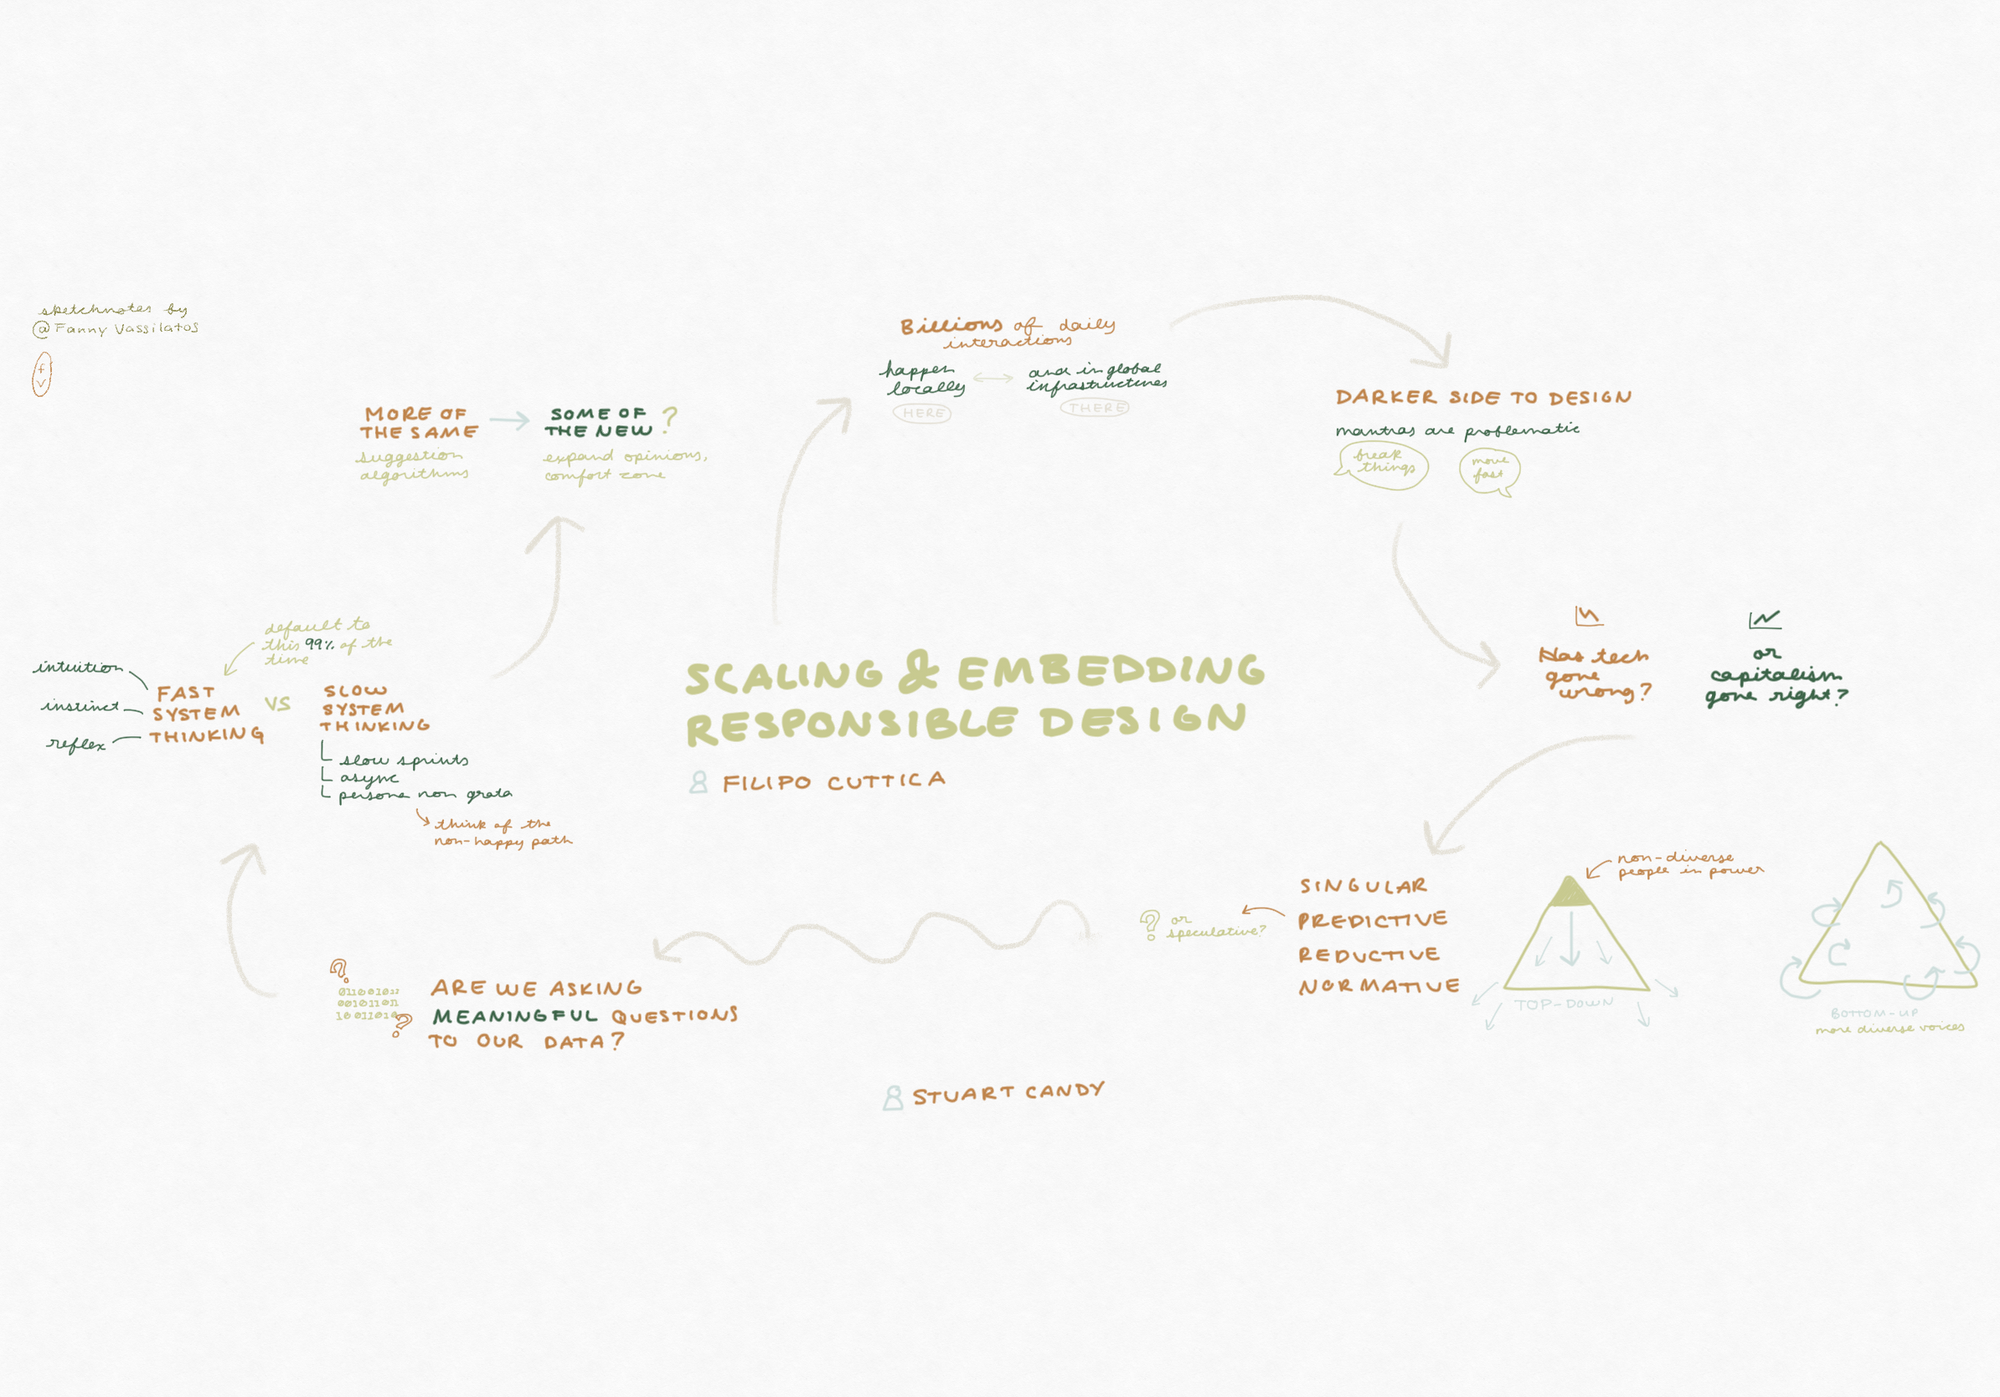 sketchnotes by
@Fanny Vassilatos
f
v
SCALING & EMBEDDING
RESPONSIBLE DESIGN
FILIPO CUTTICA
Billions of daily
interactions
happen
locally
HERE
and in global
infrastructures
THERE
DARKER SIDE TO DESIGN
mantras are problematic
break
things
move
fast
Has tech
gone
wrong?
or
capitalism
gone right?
SINGULAR
PREDICTIVE
REDUCTIVE
NORMATIVE
? or
speculative?
non-diverse
people in power
TOP-DOWN
BOTTOM-UP
more diverse voices
STUART CANDY
?
01100101
?
ARE WE ASKING
MEANINGFUL QUESTIONS
TO OUR DATA?
default to
this 99% of the
time
intuition
instinct
reflex
FAST
SYSTEM
THINKING
VS
SLOW
SYSTEM
THINKING
slow sprints
async
persona non grata
think of the
non-happy path
MORE OF
THE SAME
suggestion
algorithms
SOME OF
THE NEW ?
expand opinions,
comfort zone